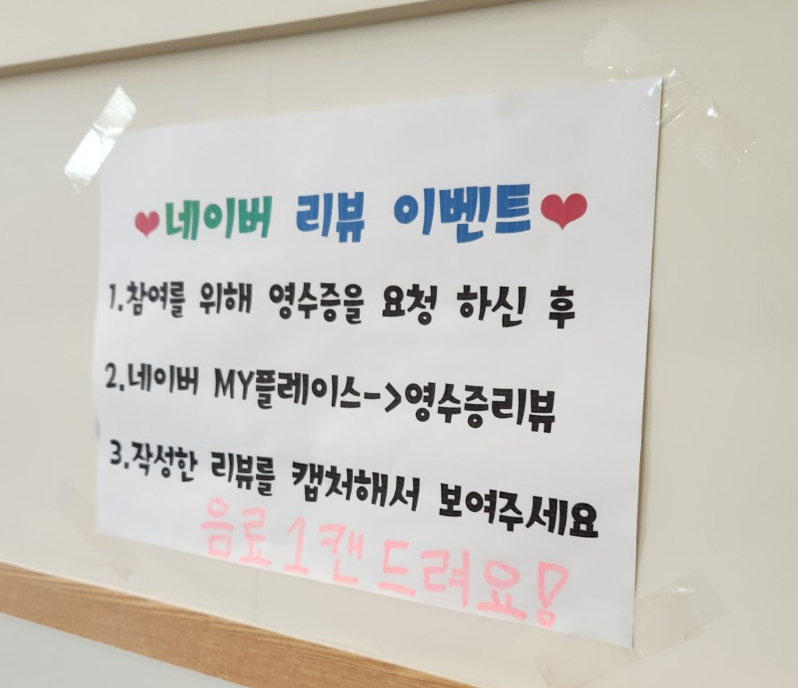 ❤네이버 리뷰 이벤트❤
1.참여를 위해 영수증을 요청 하신 후
2.네이버 MY플레이스->영수증리뷰
3.작성한 리뷰를 캡처해서 보여주세요
음료 1캔 드려요!